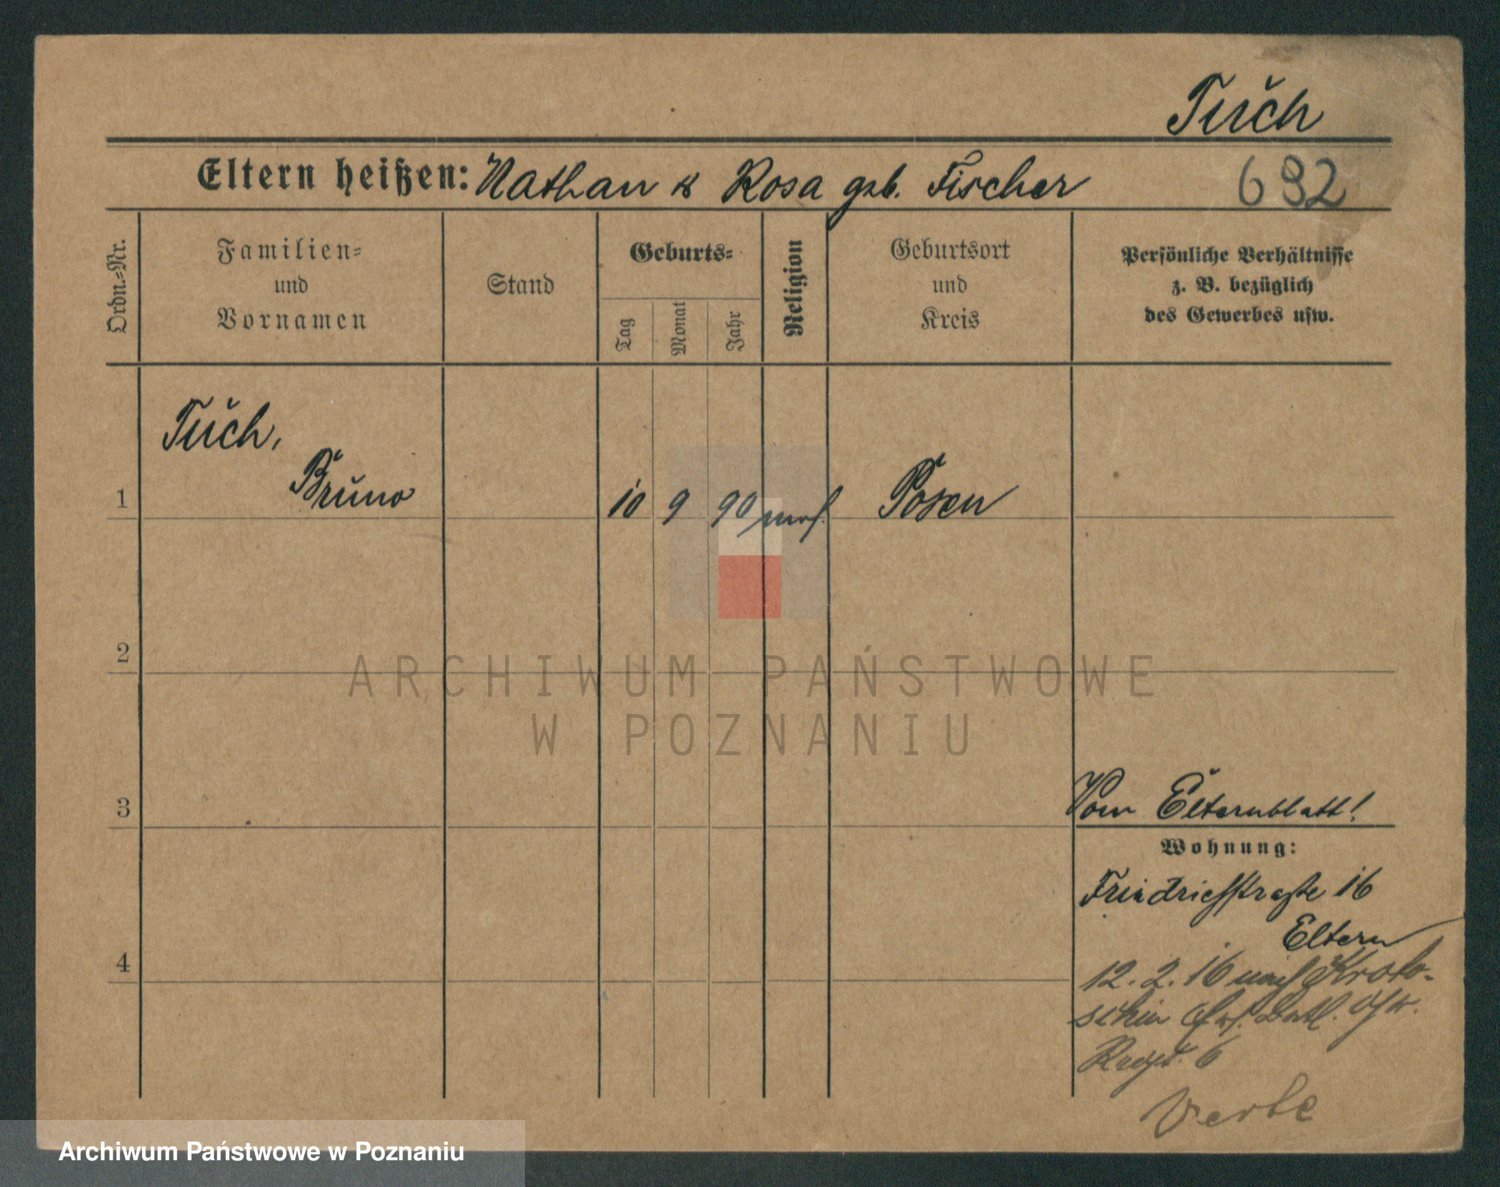 Tuch
Eltern heißen: Nathan & Rosa geb. Fischer
692
Ordn.=Nr.
Familien=
und
Vornamen
Stand
Geburts=
Tag
Monat
Jahr
Religion
Geburtsort
und
Kreis
Persönliche Verhältnisse
z. B. bezüglich
des Gewerbes usw.
Tuch,
1 Bruno 10 9 90 mos. Posen
2
ARCHIWUM PAŃSTWOWE
W POZNANIU
3
Vom Elternblatt!
Wohnung:
Friedrichstraße 16
Eltern
4
12. 2. 16 nach Kroto-
schin Ers. Batl.
Regt. 6
Archiwum Państwowe w Poznaniu